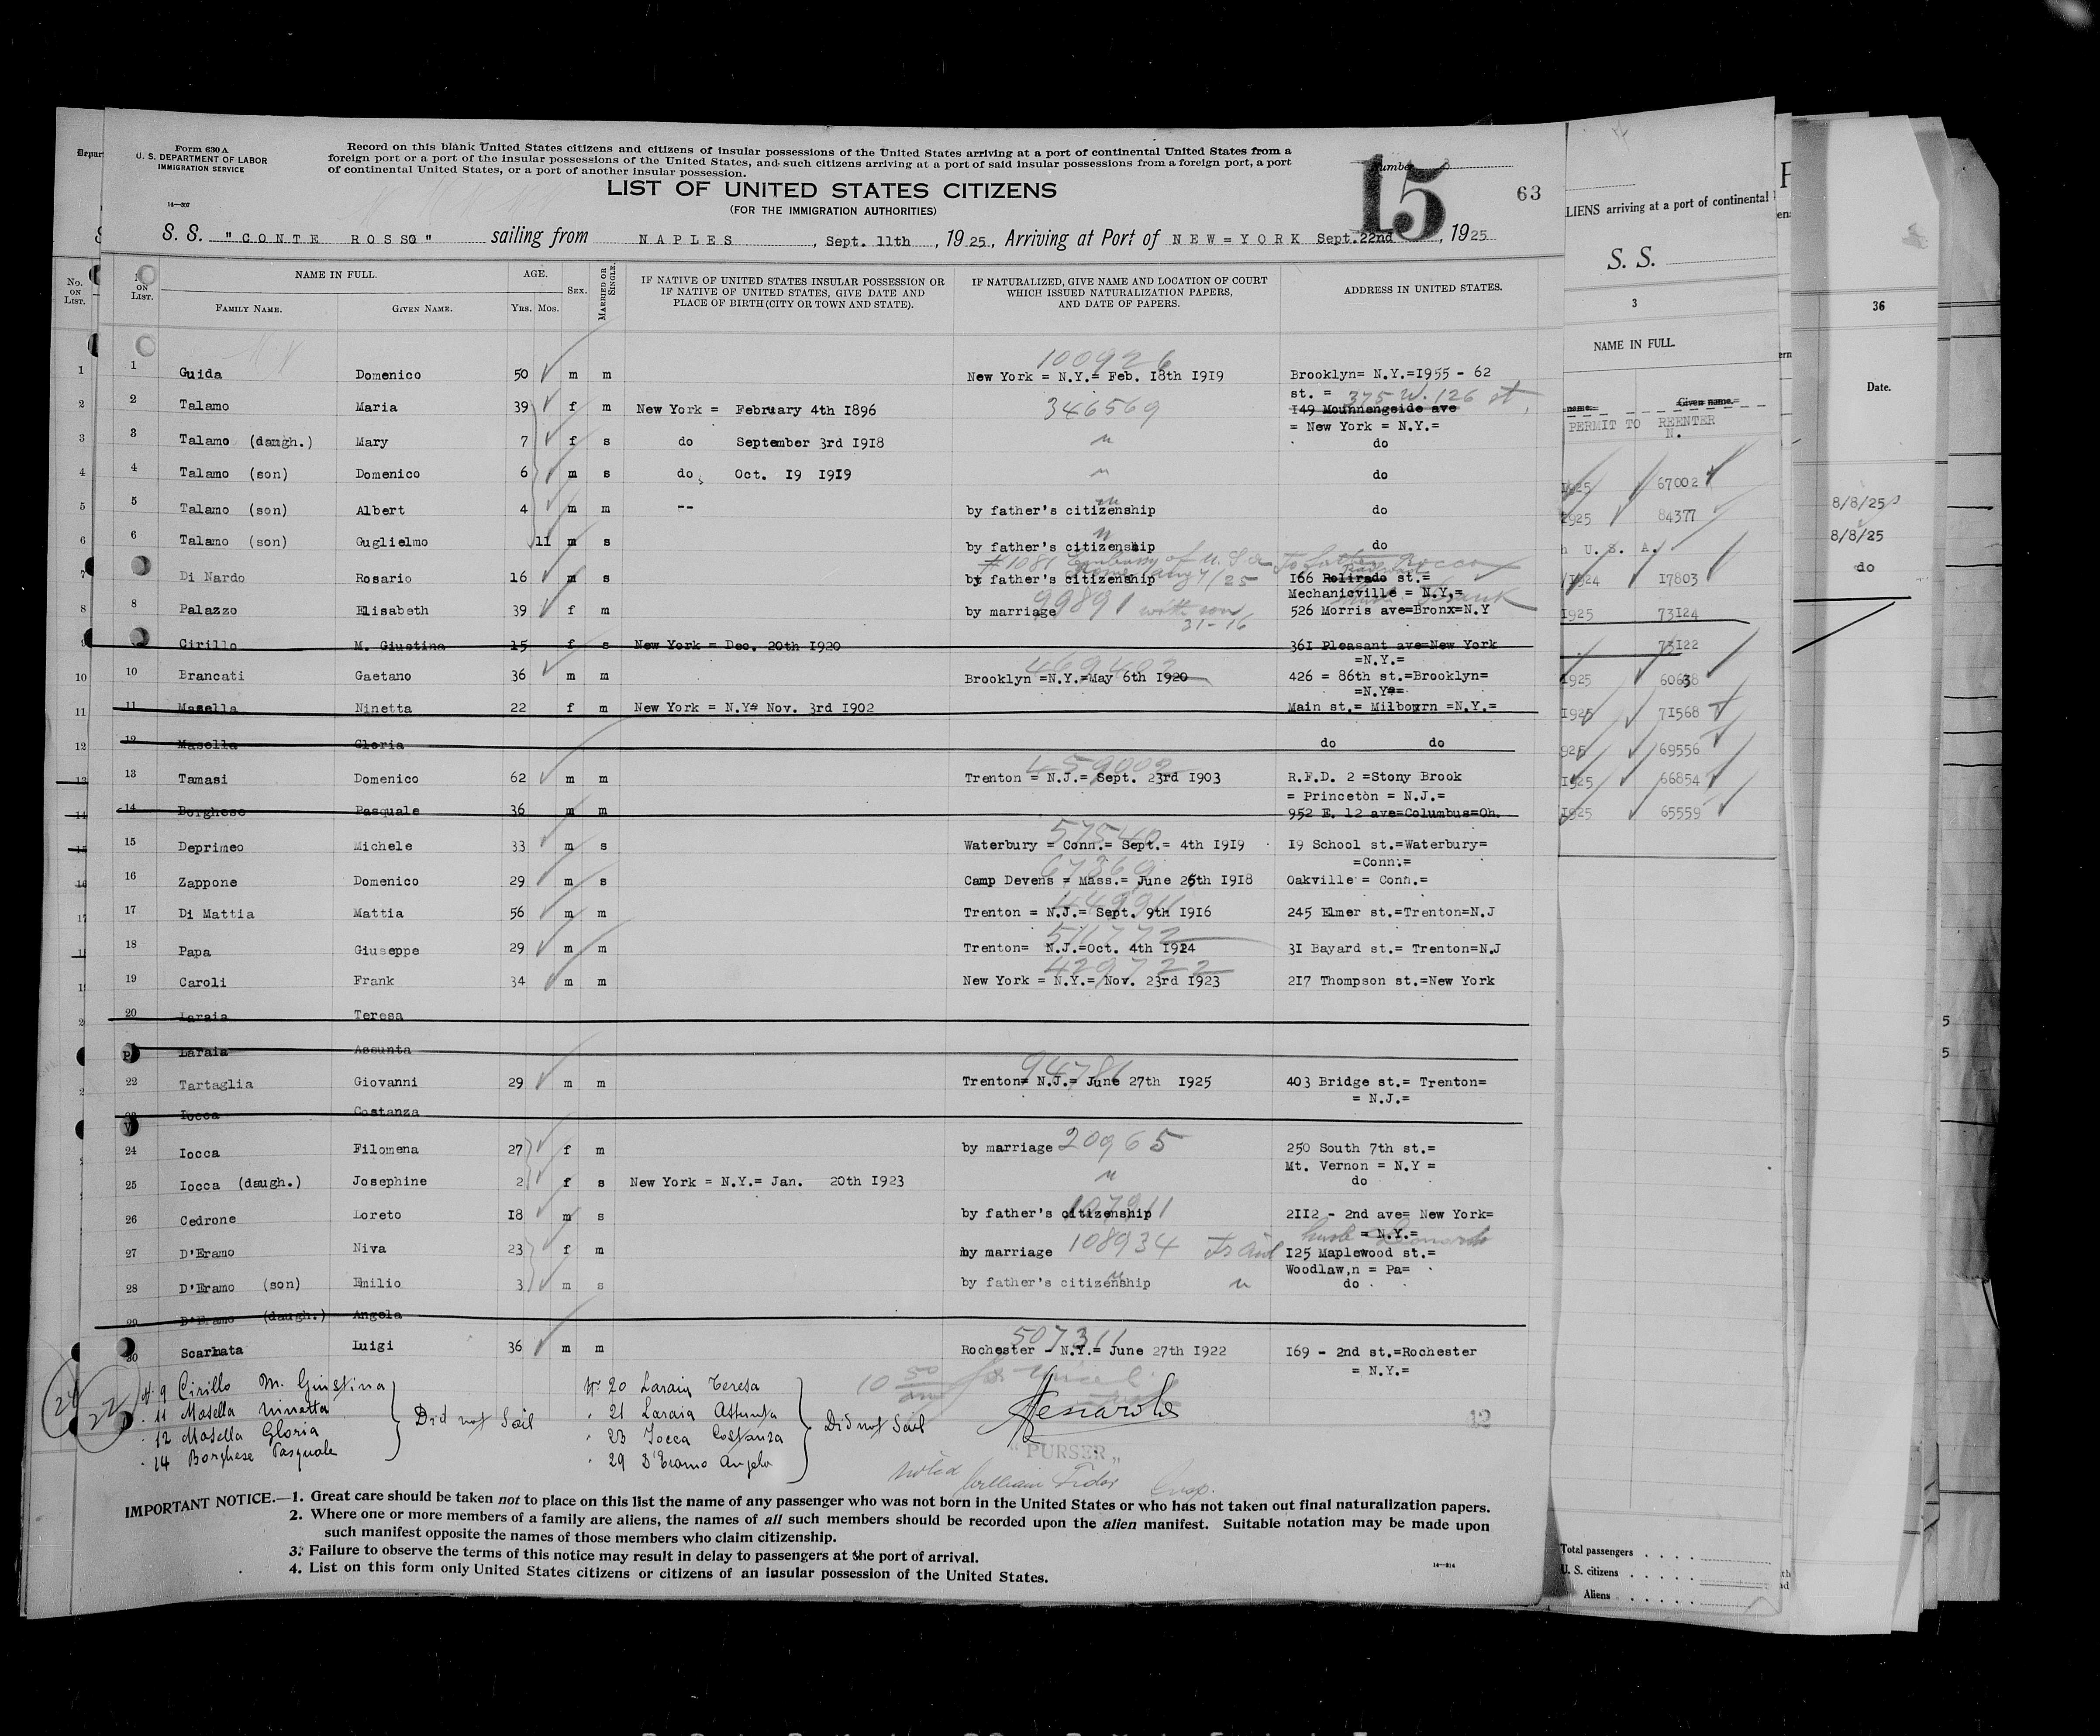 Form 630 A
U. S. DEPARTMENT OF LABOR
IMMIGRATION SERVICE
14—307
Record on this blank United States citizens and citizens of insular possessions of the United States arriving at a port of continental United States from a
foreign port or a port of the insular possessions of the United States, and such citizens arriving at a port of said insular possessions from a foreign port, a port
of continental United States, or a port of another insular possession.
Number 15
63
LIST OF UNITED STATES CITIZENS
(FOR THE IMMIGRATION AUTHORITIES)
S. S. "CONTE ROSSO" sailing from NAPLES, Sept. 11th, 1925, Arriving at Port of NEW=YORK Sept.22nd, 1925
No. ON LIST. NAME IN FULL. AGE. SEX. MARRIED OR SINGLE. IF NATIVE OF UNITED STATES INSULAR POSSESSION OR IF NATIVE OF UNITED STATES, GIVE DATE AND PLACE OF BIRTH (CITY OR TOWN AND STATE). IF NATURALIZED, GIVE NAME AND LOCATION OF COURT WHICH ISSUED NATURALIZATION PAPERS, AND DATE OF PAPERS. ADDRESS IN UNITED STATES.
FAMILY NAME. GIVEN NAME. YRS. MOS.
100926
1 Guida Domenico 50 m m New York = N.Y.= Feb. 18th 1919 Brooklyn= N.Y.=1955 - 62
st. = 375 W. 126 st.
2 Talamo Maria 39 f m New York = February 4th 1896 346569 149 Mounnengside ave
= New York = N.Y.=
3 Talamo (daugh.) Mary 7 f s do September 3rd 1918 " do
4 Talamo (son) Domenico 6 m s do Oct. 19 1919 " do
5 Talamo (son) Albert 4 m m -- by father's citizenship do
6 Talamo (son) Guglielmo 11 m s by father's citizenship do
#1081 Embassy of U.S. To father Rocco
Rome Aug 7/25
7 Di Nardo Rosario 16 m s by father's citizenship 166 Rolirado st.=
Mechanicville = N.Y.=
8 Palazzo Elisabeth 39 f m by marriage 99891 with son 526 Morris ave=Bronx=N.Y
31-16
9 Cirillo M. Giustina 15 f s New York = Dec. 20th 1920 361 Pleasant ave=New York
=N.Y.=
10 Brancati Gaetano 36 m m Brooklyn =N.Y.=May 6th 1920 426 = 86th st.=Brooklyn=
=N.Y.=
11 Masella Ninetta 22 f m New York = N.Y= Nov. 3rd 1902 Main st.= Milbourn =N.Y.=
12 Masella Gloria do do
459002
13 Tamasi Domenico 62 m m Trenton = N.J.= Sept. 23rd 1903 R.F.D. 2 =Stony Brook
= Princeton = N.J.=
14 Borghese Pasquale 36 m m 952 E. 12 ave=Columbus=Oh.
57540
15 Deprimeo Michele 33 m s Waterbury = Conn.= Sept.= 4th 1919 19 School st.=Waterbury=
=Conn.=
67369
16 Zappone Domenico 29 m s Camp Devens = Mass.= June 26th 1918 Oakville = Conn.=
17 Di Mattia Mattia 56 m m Trenton = N.J.= Sept. 9th 1916 245 Elmer st.=Trenton=N.J
511772
18 Papa Giuseppe 29 m m Trenton= N.J.=Oct. 4th 1924 31 Bayard st.= Trenton=N.J
429722
19 Caroli Frank 34 m m New York = N.Y.= Nov. 23rd 1923 217 Thompson st.=New York
20 Laraia Teresa
Laraia Assunta
94781
22 Tartaglia Giovanni 29 m m Trenton= N.J.= June 27th 1925 403 Bridge st.= Trenton=
= N.J.=
23 Iocca Costanza
24 Iocca Filomena 27 f m by marriage 20965 250 South 7th st.=
Mt. Vernon = N.Y =
25 Iocca (daugh.) Josephine 2 f s New York = N.Y.= Jan. 20th 1923 " do
107911
26 Cedrone Loreto 18 m s by father's citizenship 2112 - 2nd ave= New York=
= N.Y.=
husb Leonardo
27 D'Eramo Niva 23 f m by marriage 108934 125 Maplewood st.=
Woodlaw,n = Pa=
28 D'Eramo (son) Emilio 3 m s by father's citizenship " do
29 D'Eramo (daugh.) Angela
507311
30 Scarbata Luigi 36 m m Rochester - N.Y.= June 27th 1922 169 - 2nd st.=Rochester
= N.Y.=
24
22
N. 9 Cirillo M. Giustina
" 11 Masella Ninetta
" 12 Masella Gloria
" 14 Borghese Pasquale
Did not Sail
N. 20 Laraia Teresa
" 21 Laraia Assunta
" 23 Iocca Costanza
" 29 D'Eramo Angela
Did not Sail
12
"PURSER"
Noted William
Insp.
IMPORTANT NOTICE.—1. Great care should be taken not to place on this list the name of any passenger who was not born in the United States or who has not taken out final naturalization papers.
2. Where one or more members of a family are aliens, the names of all such members should be recorded upon the alien manifest. Suitable notation may be made upon
such manifest opposite the names of those members who claim citizenship.
3. Failure to observe the terms of this notice may result in delay to passengers at the port of arrival.
4. List on this form only United States citizens or citizens of an insular possession of the United States.
14—314
LIENS arriving at a port of continental
S. S.
3
NAME IN FULL.
name. Given name.
PERMIT TO REENTER
N.
1925 67002
1925 84377
U. S. A.
1924 17803
1925 73124
73122
1925 60638
1925 71568
925 69556
1925 66854
1925 65559
Total passengers
U. S. citizens
Aliens
36
Date.
8/8/25
8/8/25
do
5
5